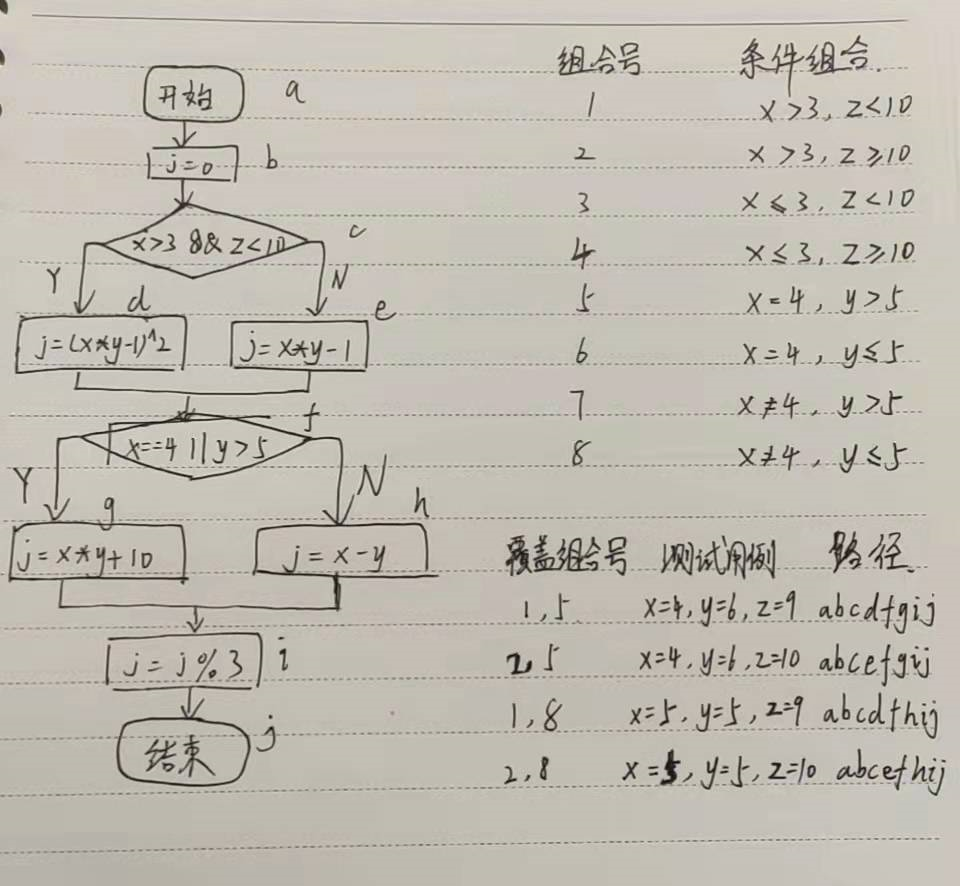 开始 a
j=0 b
x>3 && z<10 c
Y N
d e
j=(x*y-1)^2 j=x*y-1
f
x==4 || y>5
Y N
g h
j=x*y+10 j=x-y
j=j%3 i
结束 j
组合号 条件组合.
1 x>3, z<10
2 x>3, z≥10
3 x≤3, z<10
4 x≤3, z≥10
5 x=4, y>5
6 x=4, y≤5
7 x≠4, y>5
8 x≠4, y≤5
覆盖组合号 测试用例 路径
1,5 x=4, y=6, z=9 abcdfgij
2,5 x=4, y=6, z=10 abcefgij
1,8 x=5, y=5, z=9 abcdfhij
2,8 x=5, y=5, z=10 abcefhij